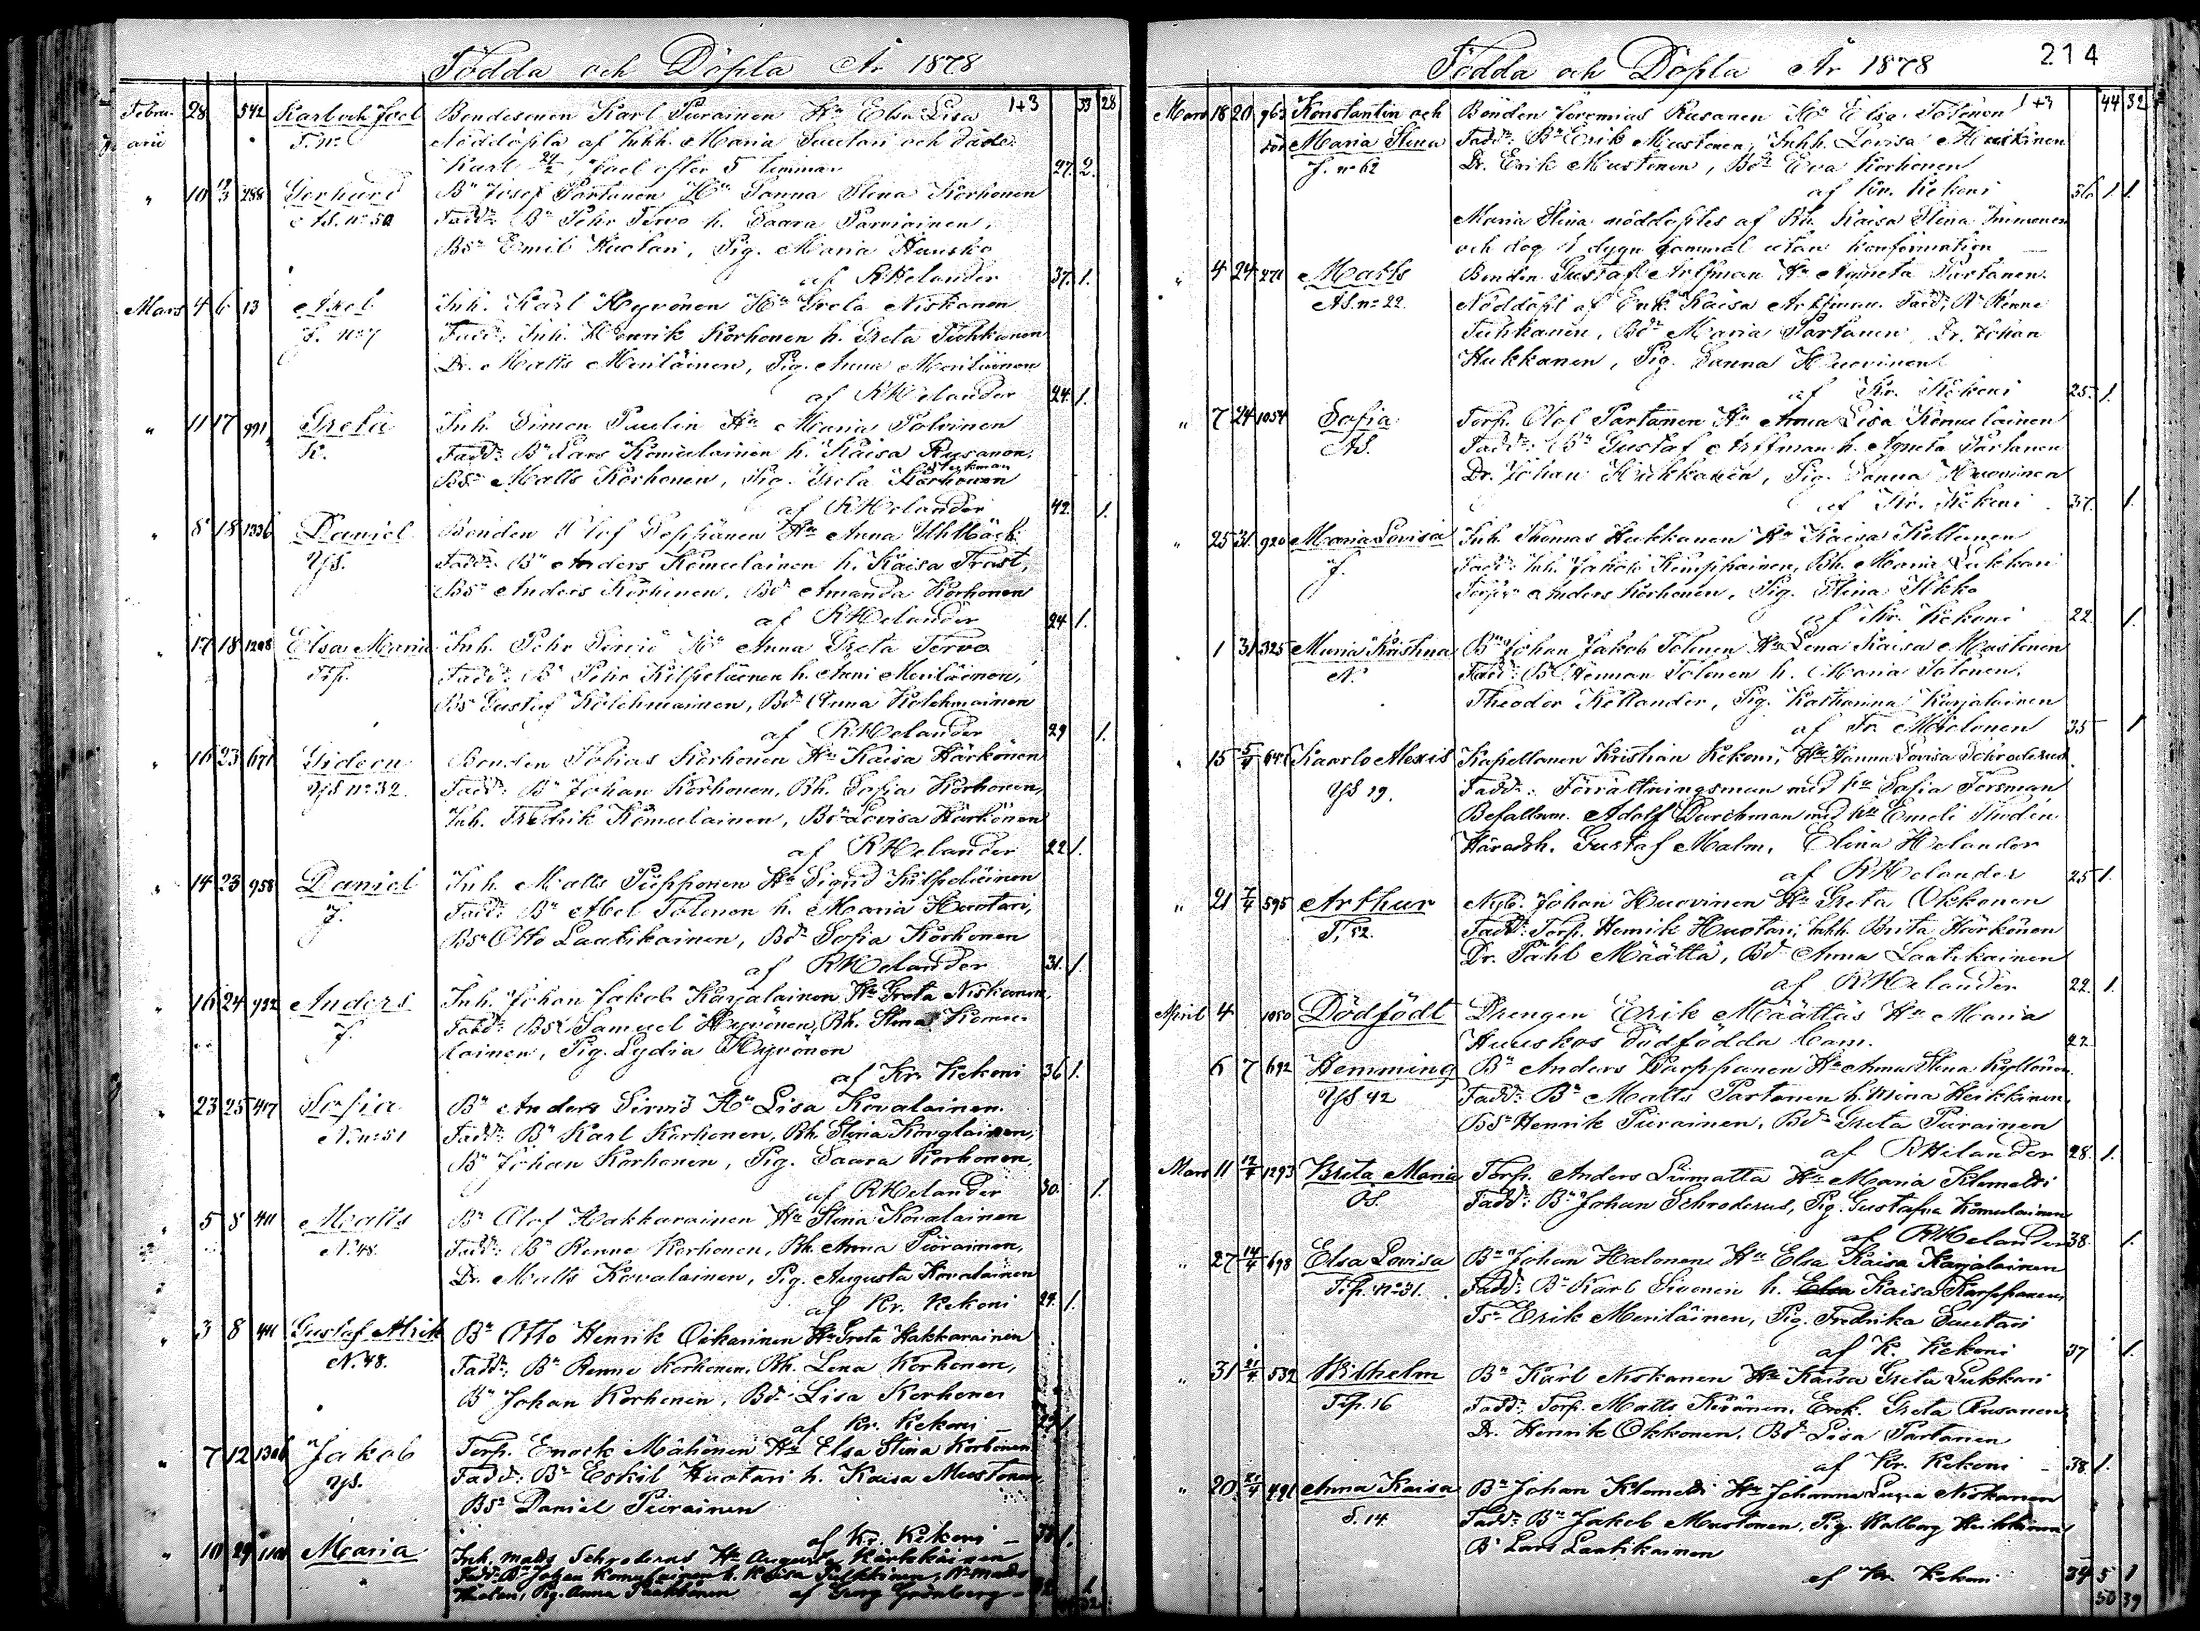 Födda och Döpta År 1878
Febru- 28 542 Karl och Joel Bondesonen Karl Piirainen Hu Elsa Lisa 1+3 33 28
arii Nöddöpta af Inhh. Maria och döde:
Karl Joel efter 5 timmar 27. 2.
" 10 288 Gerhard Bn Josef Partanen Hu Sanna Stina Korhonen
AS. no 50 Fadd: Bn Pehr Tervo h. Saara Parviainen,
Bsn Emil Huotari, Pig. Maria Hausko
af RHelander 37. 1.
Mars 4 6 13 Axel Inh. Karl Hyvönen Hu Greta Niskanen
J. no 7 Fadd: Inh. Henrik Korhonen h. Greta Tuhkanen
Dr. Matts Meriläinen, Pig. Anna Meriläinen
af RHelander 24. 1.
" 11 17 991 Greta Inh. Simon Paulin Hu Maria Tolvinen
K. Fadd: Bn Lars Komulainen h. Kaisa Rusanen,
Bsn Matts Korhonen, Pig. Greta
af RHelander 42. 1.
" 8 18 1336 Daniel Bonden Olof Seppänen Hu Anna
YS. Fadd: Bn Anders Komulainen h. Kaisa Trast,
Bsn Anders Korhonen, Bd. Amanda Korhonen
af RHelander 24 1.
" 17 18 1208 Elsa Maria Inh. Pehr Sirviö Hu Anna Greta Tervo
Tip. Fadd: Bn Pehr Kilpeläinen h. Anni Meriläinen,
Bsn Gustaf Kolehmainen, Bd. Anna Kolehmainen
af RHelander 29 1.
" 16 23 671 Gideon Bonden Tobias Korhonen Hu Kaisa Härkönen
YS no 32. Fadd: Bn Johan Korhonen, Bh. Sofia Korhonen,
Inh. Fredrik Komulainen, Bd. Lovisa Härkönen
af RHelander 22 1.
" 14 23 958 Daniel Inh. Matts Piipponen Hu Sigrid Kilpeläinen
J. Fadd: Bn Abel Tolonen h. Maria Huotari,
Bsn Otto Laatikainen, Bd. Sofia Korhonen
af RHelander 31. 1.
" 16 24 932 Anders Inh. Johan Jakob Karjalainen Hu Greta Niskanen,
J. Fadd: Bsn Samuel Hyvönen, Bh. Stina Komu-
lainen, Pig. Lydia Hyvönen
af Kr. Kekoni 36 1.
" 23 25 417 Sofia Bn Anders Sirviö Hu Lisa Kovalainen.
N. no 51 Fadd: Bn Karl Korhonen, Bh. Stina
Bn Johan Korhonen, Pig. Saara Korhonen,
af RHelander 30. 1.
" 5 8 411 Matts Bn Olof Hakkarainen Hu Stina Kovalainen
N. 48. Fadd: Bn Renne Korhonen, Bh. Anna Piirainen,
Dr. Matts Kovalainen, Pig. Augusta Kovalainen
af Kr. Kekoni 29. 1.
" 3 8 411 Gustaf Alrik Bn Otto Henrik Oikarinen Hu Greta Hakkarainen
N. 48. Fadd: Bn Renne Korhonen, Bh. Lena Korhonen,
Bn Johan Korhonen, Bd. Lisa Korhonen
af Kr. Kekoni 1.
" 7 12 Jakob Torp. Enock Mähönen Hu Elsa Stina Korhonen
YS. Fadd: Bn Eskil Huotari h. Kaisa Mustonen,
Bsn Daniel Piirainen
af Kr. Kekoni 1.
" Maria Inh. Mads Schroderus Hu Augusta
Fadd: Bn Johan Komulainen h. Kaisa Pulkkinen,
Pig. Anna af Georg Grönberg
Födda och Döpta År 1878 214
Mars 18 20 963 Konstantin och Bonden Jeremias Rusanen Hu Elsa Tolonen 1+3 44 32
Maria Stina Fadd: Bn Erik Mustonen, Inhh. Lovisa Heikkinen
J. no 62 Dr. Erik Mustonen, Bd. Eva Korhonen
af Kr. Kekoni 36 1 1.
Maria Stina nöddöptes af Bh. Kaisa Stina Immonen
och dog 1 dygn gammal utan konfirmation
" 4 24 271 Matts Bonden Gustaf Artman Hu Agneta Partanen.
AS. no 22. Nöddöpt af Enk. Kaisa Artman. Fadd: Bn Renne
Tuhkanen, Bd. Maria Partanen, Dr. Johan
Hukkanen, Pig. Sanna Huovinen
af Kr. Kekoni 25. 1.
" 7 24 1054 Sofia Torp. Olof Partanen Hu Anna Lisa Komulainen
AS. Fadd: Bn Gustaf Artman h. Agneta Partanen
Dr. Johan Hukkanen, Pig. Sanna Huovinen
af Kr. Kekoni 37. 1.
" 25 31 920 Maria Lovisa Inh. Thomas Hukkanen Hu Kaisa Keltanen
J. Fadd: Inh. Jakob Kemppainen, Bh. Maria Lukkari
Anders Korhonen, Pig. Stina Ukko
af Kr. Kekoni 22. 1.
" 1 31 325 Maria Kristina Bn Johan Jakob Tolonen Hu Lena Kaisa Mustonen
N. Fadd: Bn Herman Tolonen h. Maria Tolonen,
Theodor Kellander, Pig. Katharina Karjalainen
af 35 1
" 15 5/4 Kaarlo Alexis Kapellanen Kristian Kekoni, Hu Hanna Lovisa Schroderus
YS 29. Fadd: Förrättningsman med fru Sofia Forsman
Befallnm. Adolf Durchman med hu Emeli Thodin
Häradsh. Gustaf Malm, Elina Helander
af RHelander 25 1.
" 21 7/4 595 Arthur Nyb. Johan Huovinen Hu Greta Okkonen
T. 52. Fadd: Torp. Henrik Huotari, Inhh. Brita Härkönen
Dr. Påhl Määttä, Bd. Anna Laatikainen
af RHelander 22. 1.
April 4 1050 Dödfödt Drengen Erik Määttäs Hu Maria
Hauskos dödfödda barn. 22.
6 7 692 Hemming Bn Anders Karppanen Hu Anna Stina Kyllönen
YS 42 Fadd: Bn Matts Partanen h. Stina Heikkinen,
Bsn Henrik Piirainen, Bd. Greta Piirainen
af RHelander 28. 1.
Mars 11 12/4 1293 Brita Maria Torp. Anders Liimatta Hu Maria Klemetti
OS. Fadd: Bn Johan Schroderus, Pig. Gustafva Komulainen
af RHelander 38. 1.
" 27 14/4 698 Elsa Lovisa Bn Johan Halonen Hu Elsa Kaisa Karjalainen
Tip. no 31. Fadd: Bn Karl Sivonen h. Elsa Kaisa Karppanen,
Erik Meriläinen, Pig. Fredrika
af K. Kekoni 37 1.
" 31 21/4 532 Wilhelm Bn Karl Niskanen Hu Kaisa Greta Lukkari
Tip. 16 Fadd: Torp. Matts Keränen, Enk. Greta Rusanen
Dr. Henrik Okkonen, Bd. Lisa Partanen
af Kr. Kekoni 38. 1.
" 20 21/4 491 Anna Kaisa Bn Johan Klemetti Hu Johanna Niskanen
S. 14. Fadd: Bn Jakob Mustonen, Pig. Walborg Heikkinen
B Lars Laatikainen
af Kr. Kekoni 34 5 1
50 39